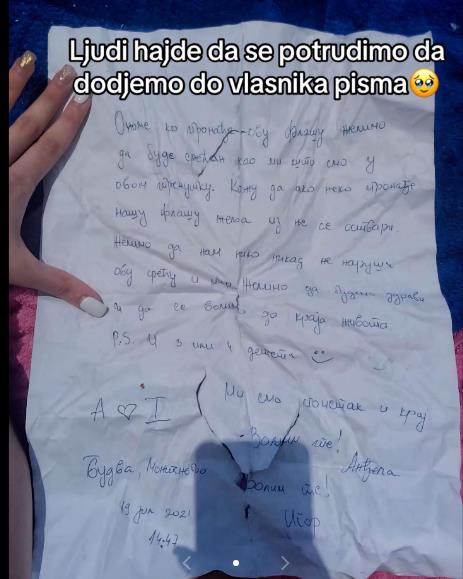 Ljudi hajde da se potrudimo da
dodjemo do vlasnika pisma🥹
Ономе ко пронађе ову флашу желимо
да буде срећан као ми што смо у
овом тренутку. Кажу да ако неко пронађе
нашу флашу жеља из ње се оствари.
Желимо да нам нико никад не наруши
ову срећу и Желимо да будемо здрави
и да се волимо до краја живота
P.S. И 3 или 4 детета
A ♡ I
Ми смо почетак и крај
- Волим те!
Анђела
Будва,
Волим те!
19 јул 2021
Игор
14:47